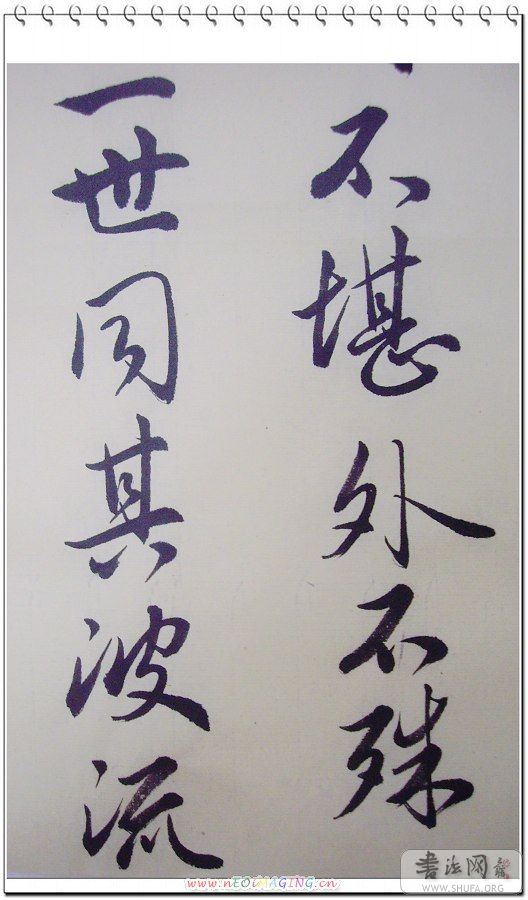 不堪外不殊
一世同其波流
書法网
WWW.SHUFA.ORG
www.nEOiMAGING.cn